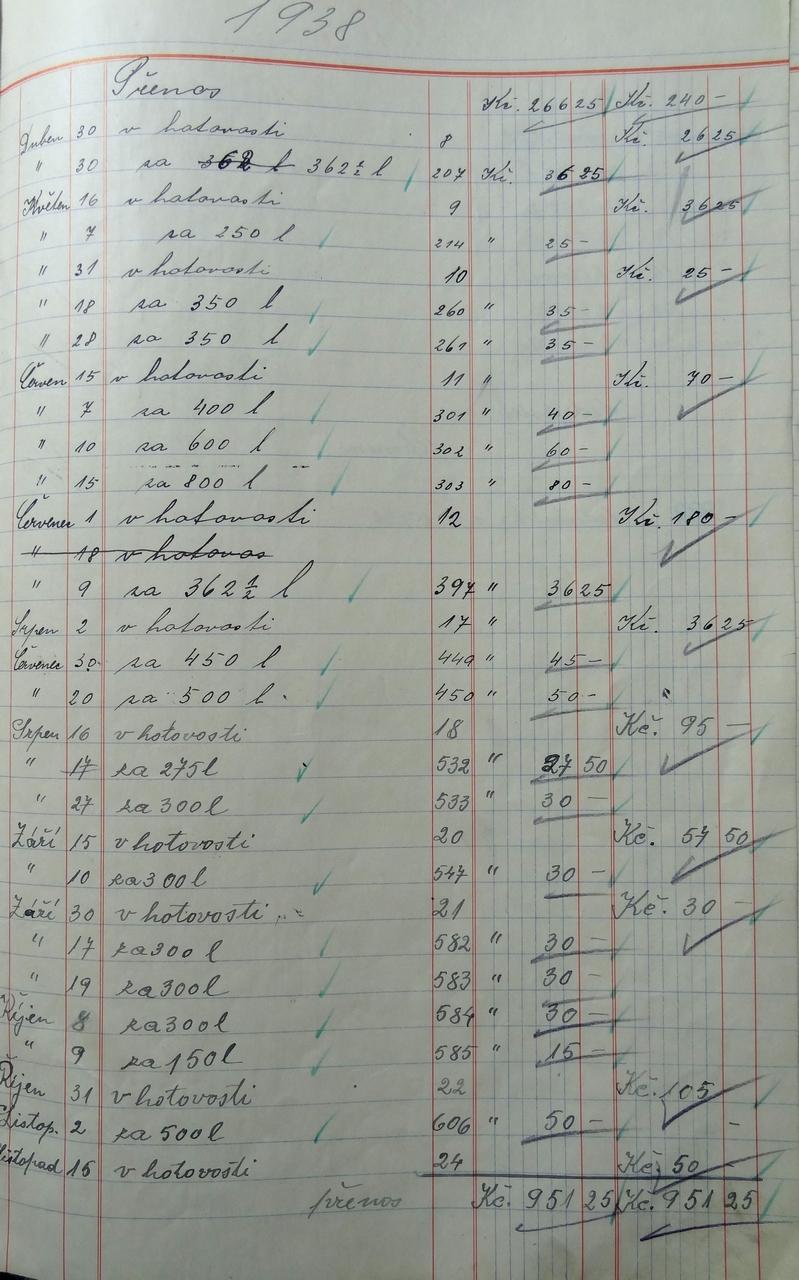 1938
Přenos Kč. 266 25 Kč. 240 -
Duben 30 v hotovosti 8 Kč. 26 25
" 30 za 362 l 362 1/2 l 207 Kč. 36 25
Květen 16 v hotovosti 9 Kč. 36 25
" 7 za 250 l 214 " 25 -
" 31 v hotovosti 10 Kč. 25 -
" 18 za 350 l 260 " 35 -
" 28 za 350 l 261 " 35 -
Červen 15 v hotovosti 11 " Kč. 70 -
" 7 za 400 l 301 " 40 -
" 10 za 600 l 302 " 60 -
" 15 za 800 l 303 " 80 -
Červenec 1 v hotovosti 12 Kč. 180 -
" 18 v hotovos
" 9 za 362 1/2 l 397 " 36 25
Srpen 2 v hotovosti 17 " Kč. 36 25
Červenec 30 za 450 l 449 " 45 -
" 20 za 500 l 450 " 50 - "
Srpen 16 v hotovosti 18 Kč. 95 -
" 17 za 275 l 532 " 27 50
" 27 za 300 l 533 " 30 -
Září 15 v hotovosti 20 Kč. 57 50
" 10 za 300 l 547 " 30 -
Září 30 v hotovosti 21 Kč. 30 -
" 17 za 300 l 582 " 30 -
" 19 za 300 l 583 " 30 -
Říjen 8 za 300 l 584 " 30 -
" 9 za 150 l 585 " 15 -
Říjen 31 v hotovosti 22 Kč. 105 -
Listop. 2 za 500 l 606 " 50 -
Listopad 15 v hotovosti 24 Kč. 50 -
přenos Kč. 951 25 Kč. 951 25